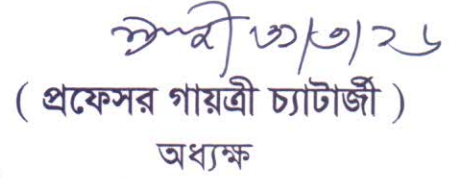 ৩১/৩/২৬
( প্রফেসর গায়ত্রী চ্যাটার্জী )
অধ্যক্ষ